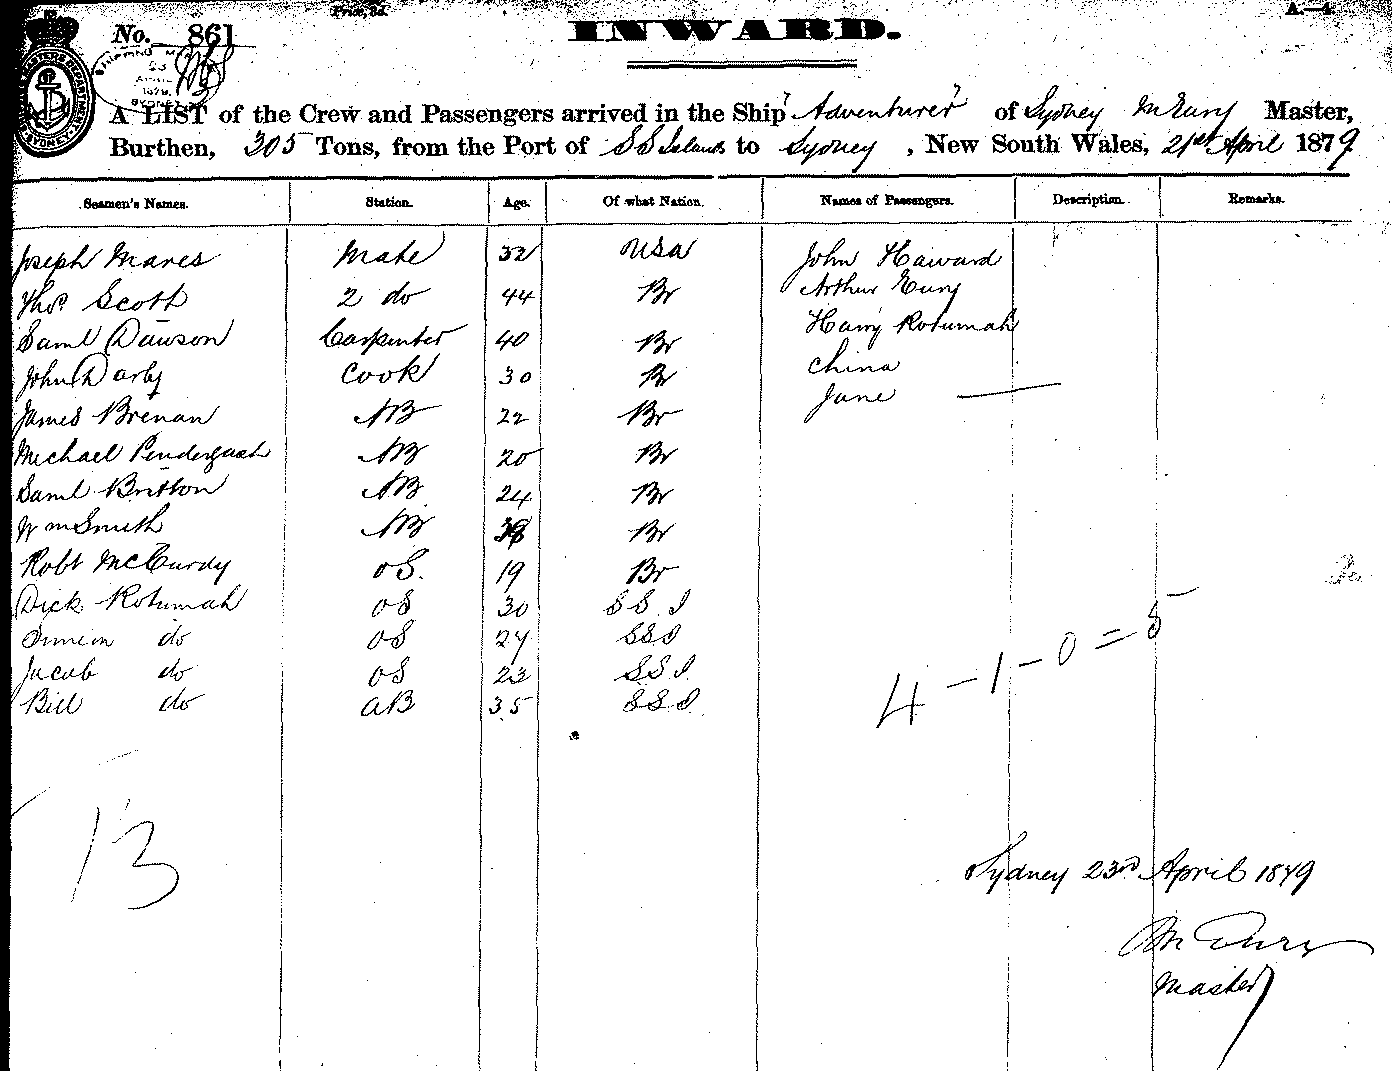 Price, 3d.
A.—4.
No. 861
INWARD.
SHIPPING MASTER'S DEPARTMENT
SYDNEY
SHIPPING
23
APRIL
1879
SYDNEY
A LIST of the Crew and Passengers arrived in the Ship "Adventurer" of Sydney M Eury Master,
Burthen, 305 Tons, from the Port of SS Islands to Sydney, New South Wales, 21st April 1879
Seamen's Names. Station. Age. Of what Nation. Names of Passengers. Description. Remarks.
Joseph Mares Mate 32 USA John Haward
Thos Scott 2 do 44 Br Arthur Eury
Saml Dawson Carpenter 40 Br Harry Rotumah
John Darby Cook 30 Br China
James Brenan AB 22 Br Jane
Michael Pendergash AB 20 Br
Saml Britton AB 24 Br
Wm Smith AB Br
Robt McCurdy OS. 19 Br
Dick Rotumah OS 30 SSI
do OS 27 SSI
Jacob do OS 23 SSI
Bill do AB 35 SSI
4 - 1 - 0 = 5
13
Sydney 23rd April 1879
M Eury
Master